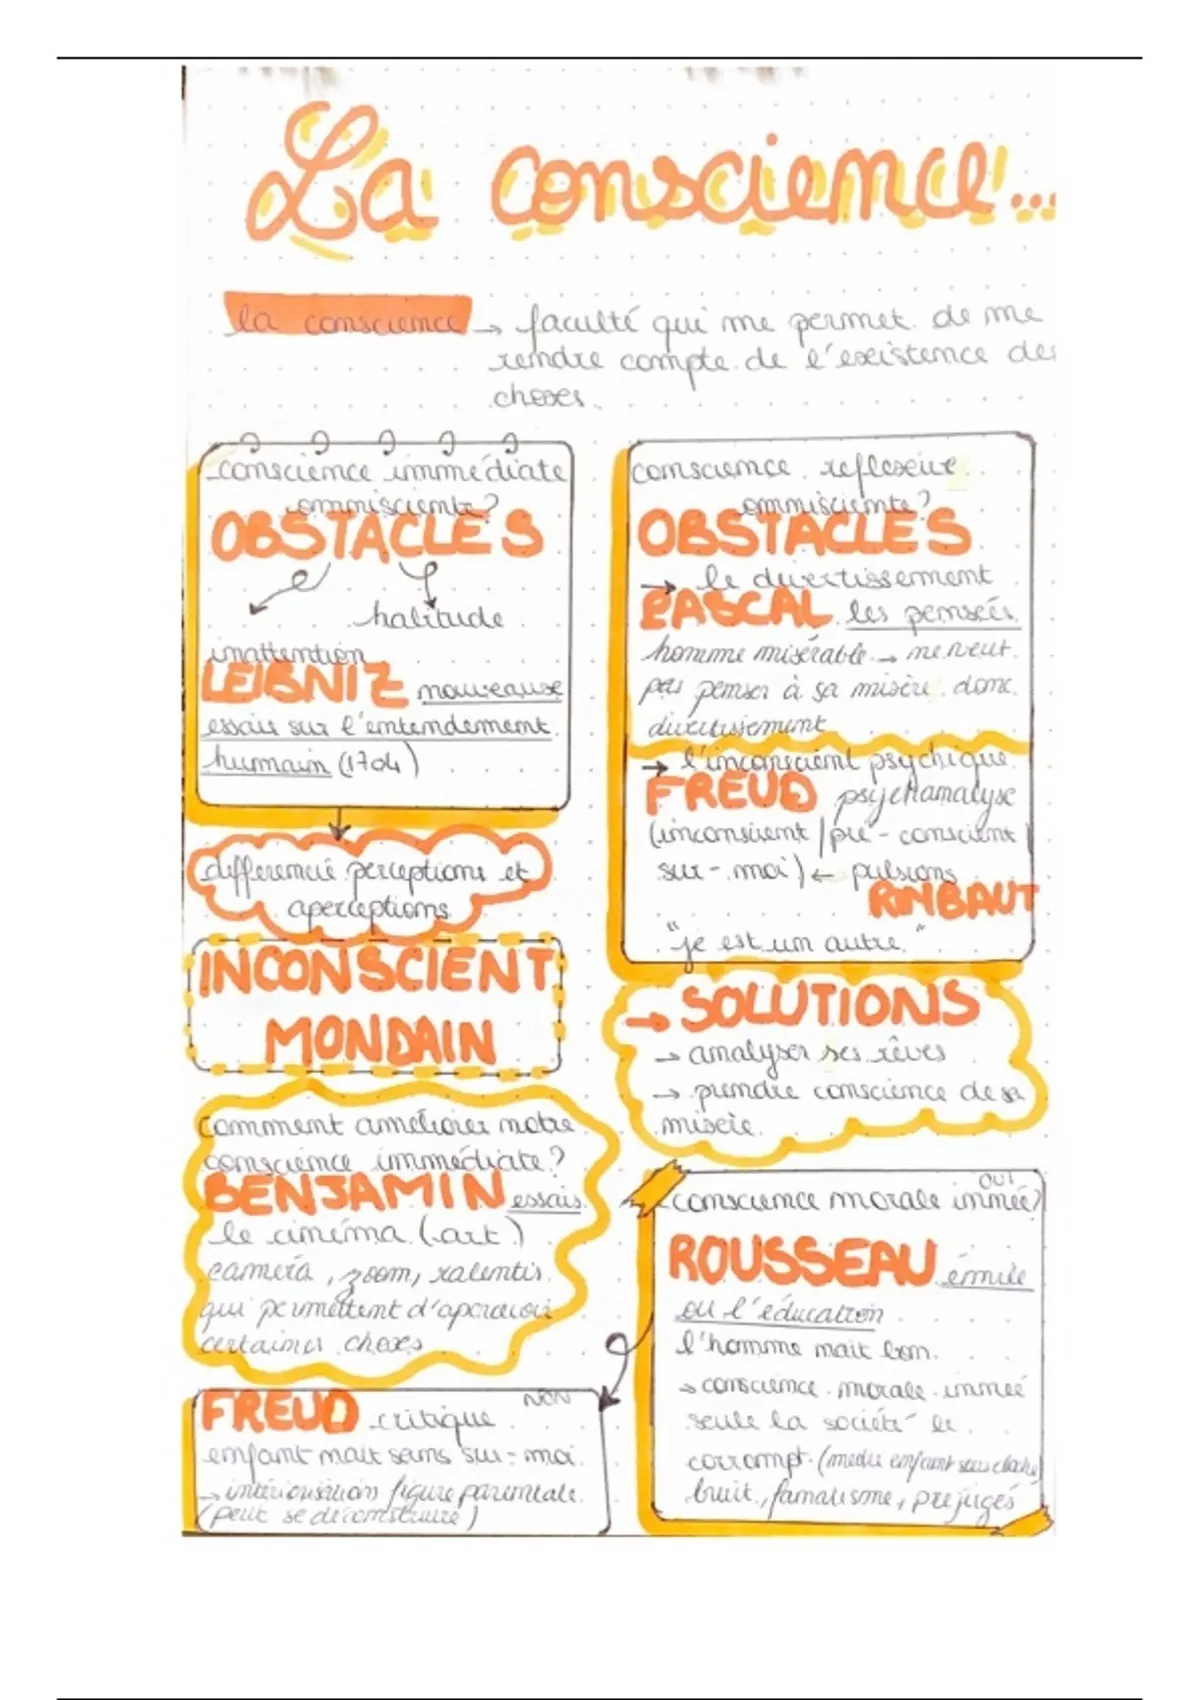 La conscience...
la conscience → faculté qui me permet de me
rendre compte de l'existence des
choses.
conscience immédiate
omnisciente?
OBSTACLES
habitude
inattention
LEIBNIZ nouveaux
essais sur l'entendement
humain (1704)
différencié perceptions et
aperceptions
INCONSCIENT
MONDAIN
comment améliorer notre
conscience immédiate?
BENJAMIN essais
le cinéma (art)
caméra, zoom, ralentis
qui permettent d'apercevoir
certaines choses
FREUD critique NON
enfant nait sans sur-moi
→ intériorisation figure parentale
(peut se déconstruire)
conscience reflexive
omnisciente?
OBSTACLES
→ le divertissement
PASCAL les pensées
homme misérable → ne veut
pas penser à sa misère donc
divertissement
→ l'inconscient psychique
FREUD psychanalyse
(inconscient / pré-conscient /
sur-moi) ← pulsions
RIMBAUT
"je est un autre"
→ SOLUTIONS
→ analyser ses rêves
→ prendre conscience de sa
misère
OUI
conscience morale innée?
ROUSSEAU émile
ou l'éducation
l'homme nait bon.
→ conscience morale innée
seule la société le
corrompt (
bruit, fanatisme, préjugés